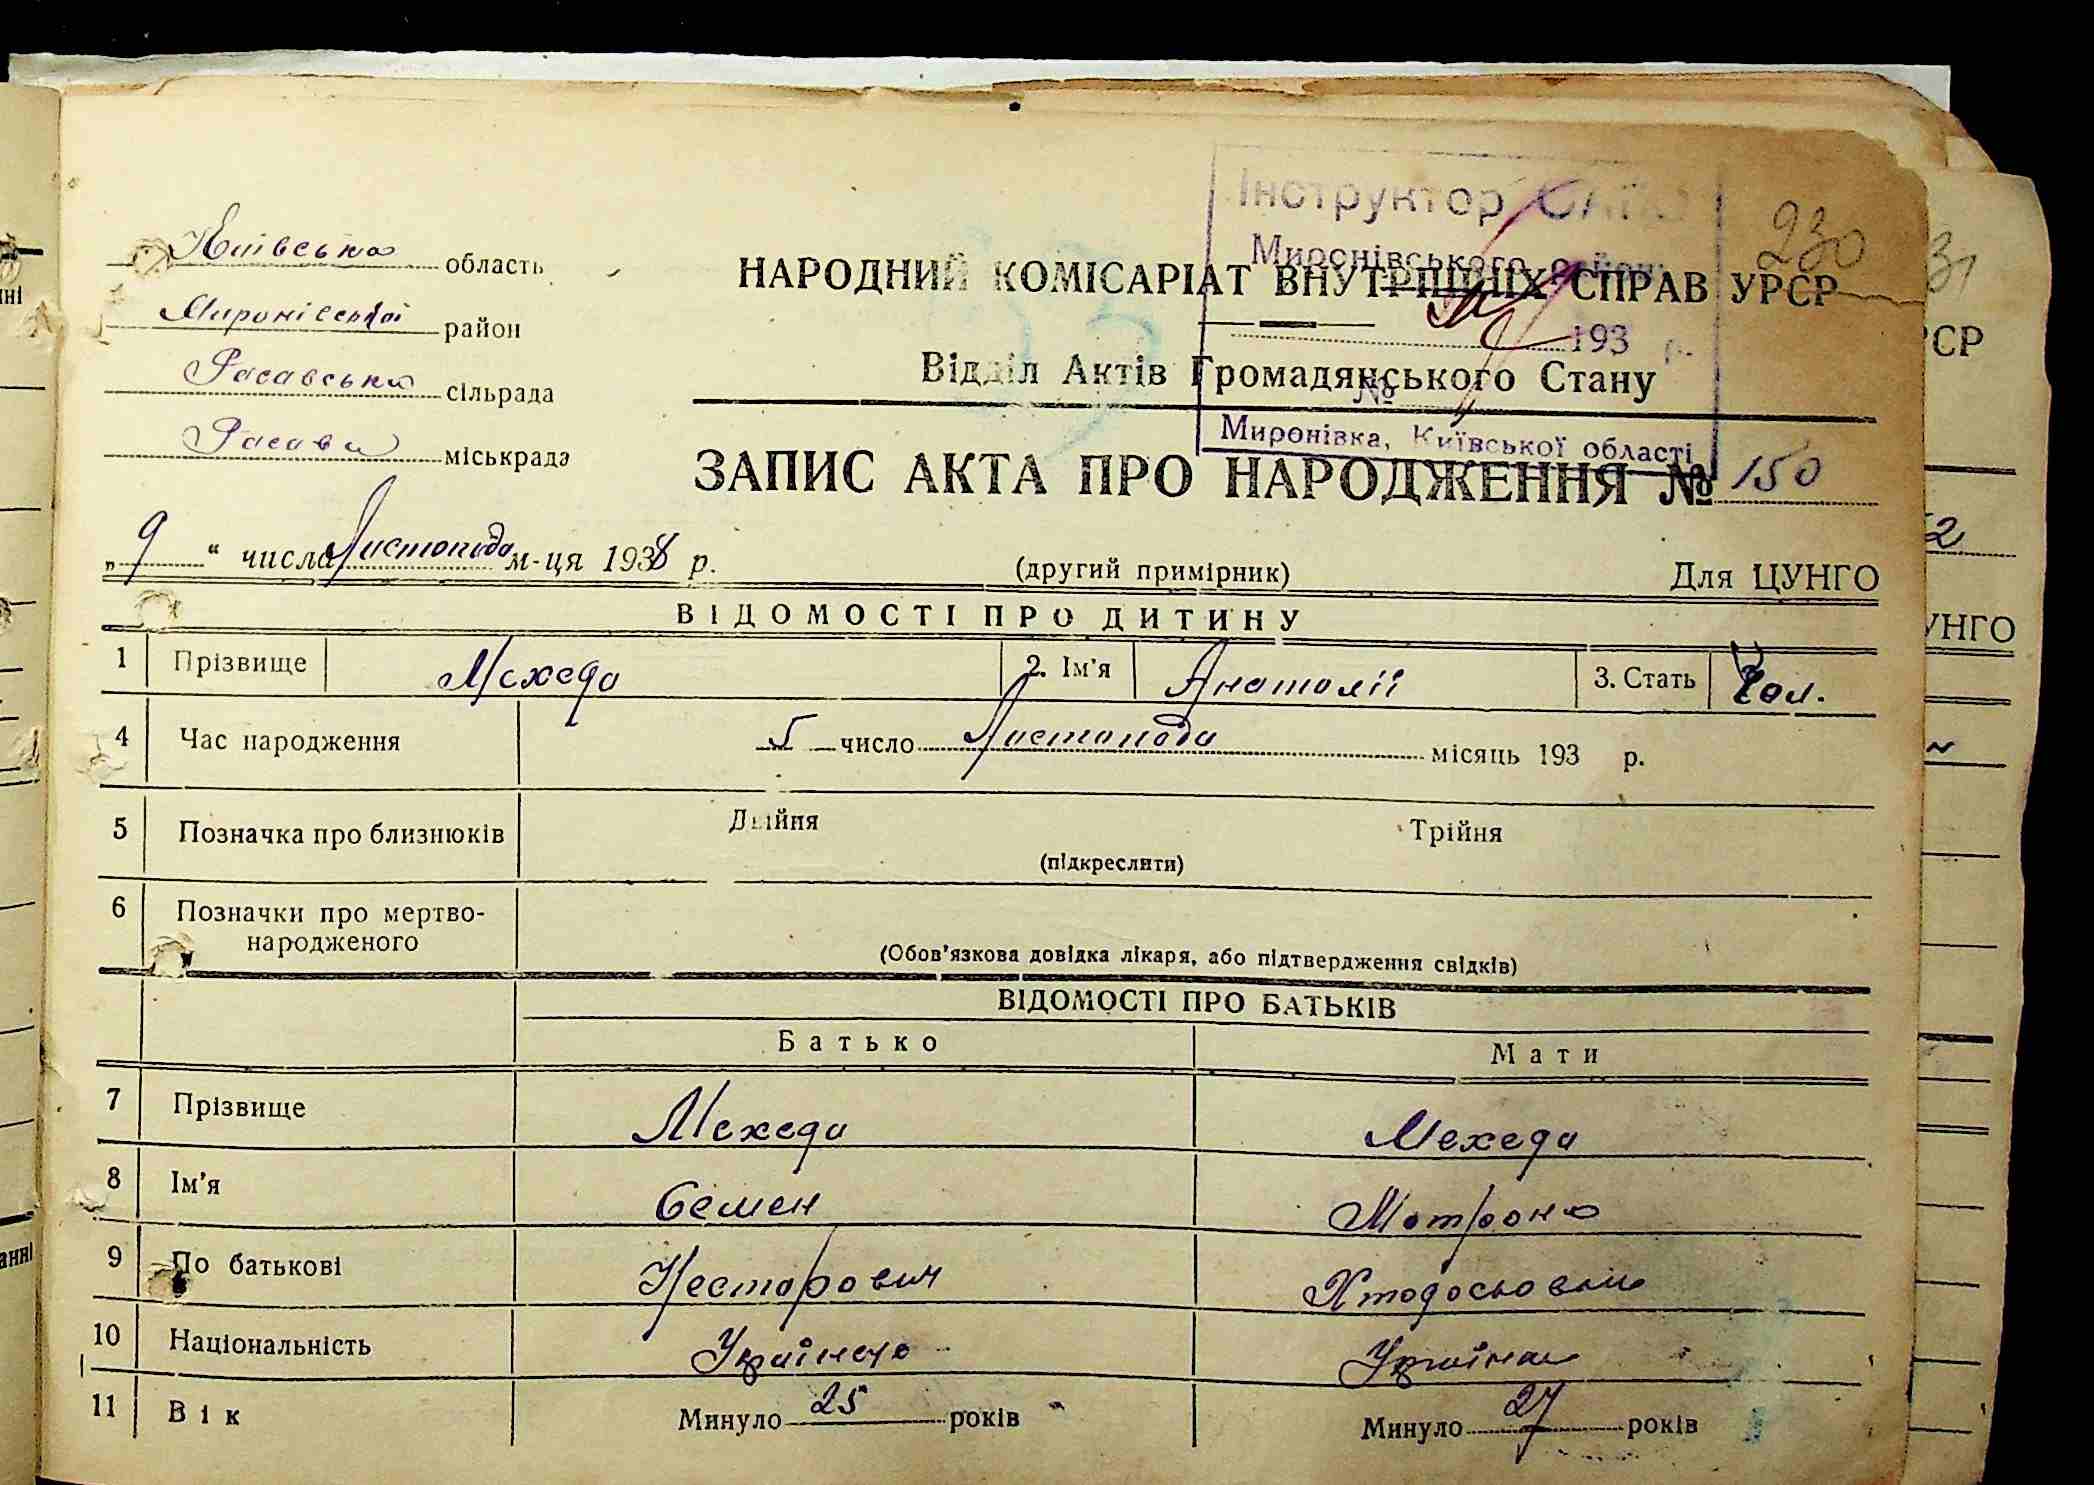 Інструктор
Миронівського району
193 р.
№
Миронівка, Київської області
230
31
Київська область
Миронівський район
Расавська сільрада
Расава міськрада
НАРОДНИЙ КОМІСАРІАТ ВНУТРІШНІХ СПРАВ УРСР
Відділ Актів Громадянського Стану
ЗАПИС АКТА ПРО НАРОДЖЕННЯ № 150
„9“ числа Листопада м-ця 1938 р.
(другий примірник)
Для ЦУНГО
ВІДОМОСТІ ПРО ДИТИНУ
1 Прізвище Мехеда 2. Ім'я Анатолій 3. Стать Чол.
4 Час народження 5 число Листопада місяць 193 р.
5 Позначка про близнюків Двійня Трійня
(підкреслити)
6 Позначки про мертво-
народженого
(Обов'язкова довідка лікаря, або підтвердження свідків)
ВІДОМОСТІ ПРО БАТЬКІВ
Батько Мати
7 Прізвище Мехеда Мехеда
8 Ім'я Семен Мотрона
9 По батькові Несторович
10 Національність
11 Вік Минуло 25 років Минуло 27 років
РСР
2
УНГО